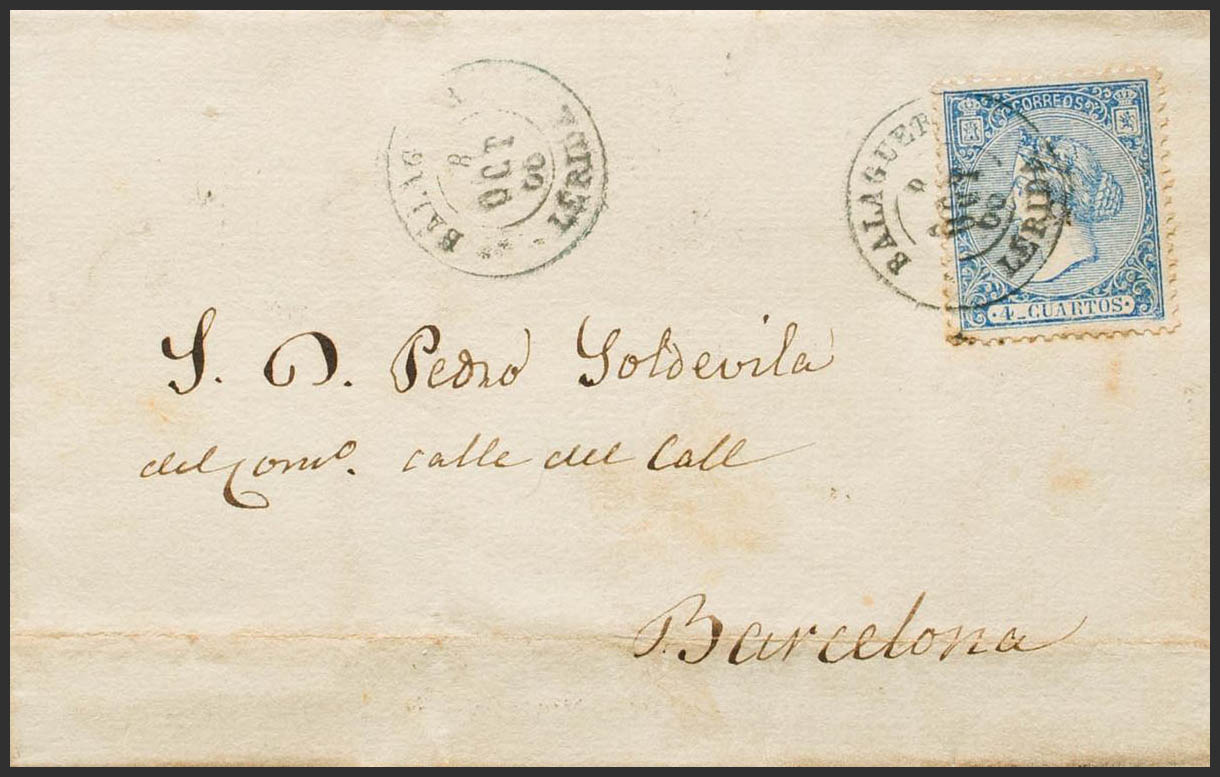 BALAG
8
OCT
LERIDA
BALAGUER
OCT
LERIDA
CORREOS
4_CUARTOS
S. D. Pedro Soldevila
del Como. calle del Call
Barcelona